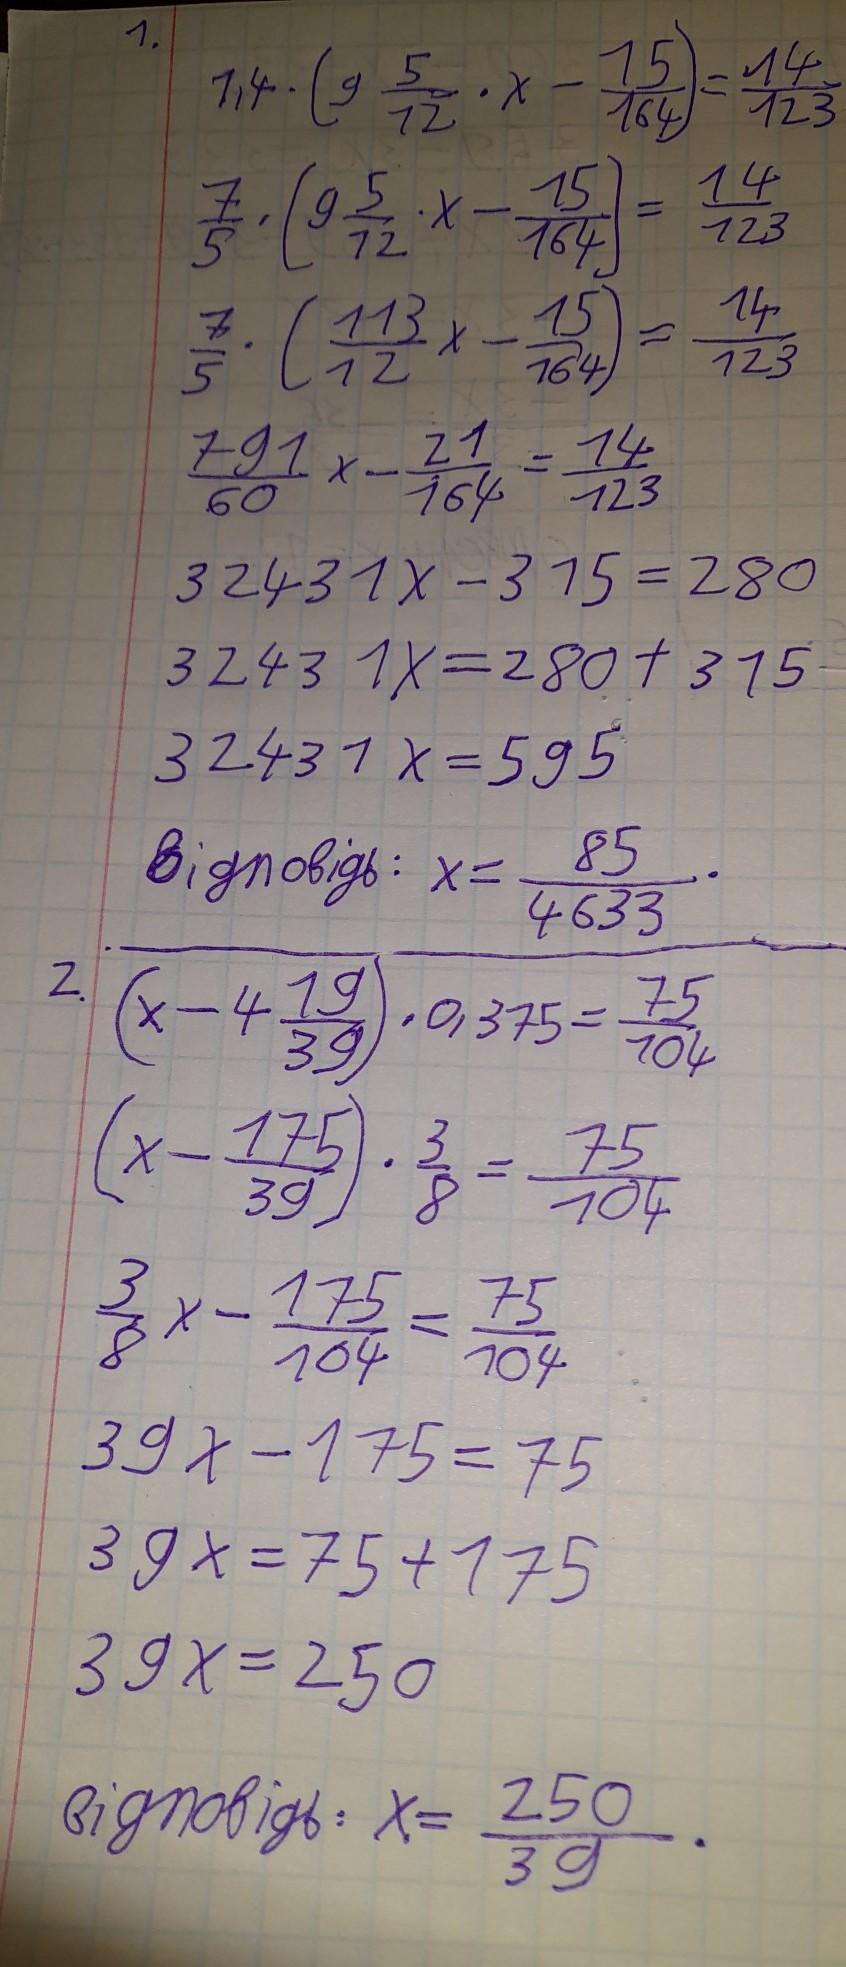 1.
1,4 · (9 5/12 · x − 15/164) = 14/123
7/5 · (9 5/12 · x − 15/164) = 14/123
7/5 · (113/12 x − 15/164) = 14/123
791/60 x − 21/164 = 14/123
32431x − 315 = 280
32431x = 280 + 315
32431x = 595
Відповідь: x = 85/4633.
2. (x − 4 19/39) · 0,375 = 75/104
(x − 175/39) · 3/8 = 75/104
3/8 x − 175/104 = 75/104
39x − 175 = 75
39x = 75 + 175
39x = 250
Відповідь: x = 250/39.